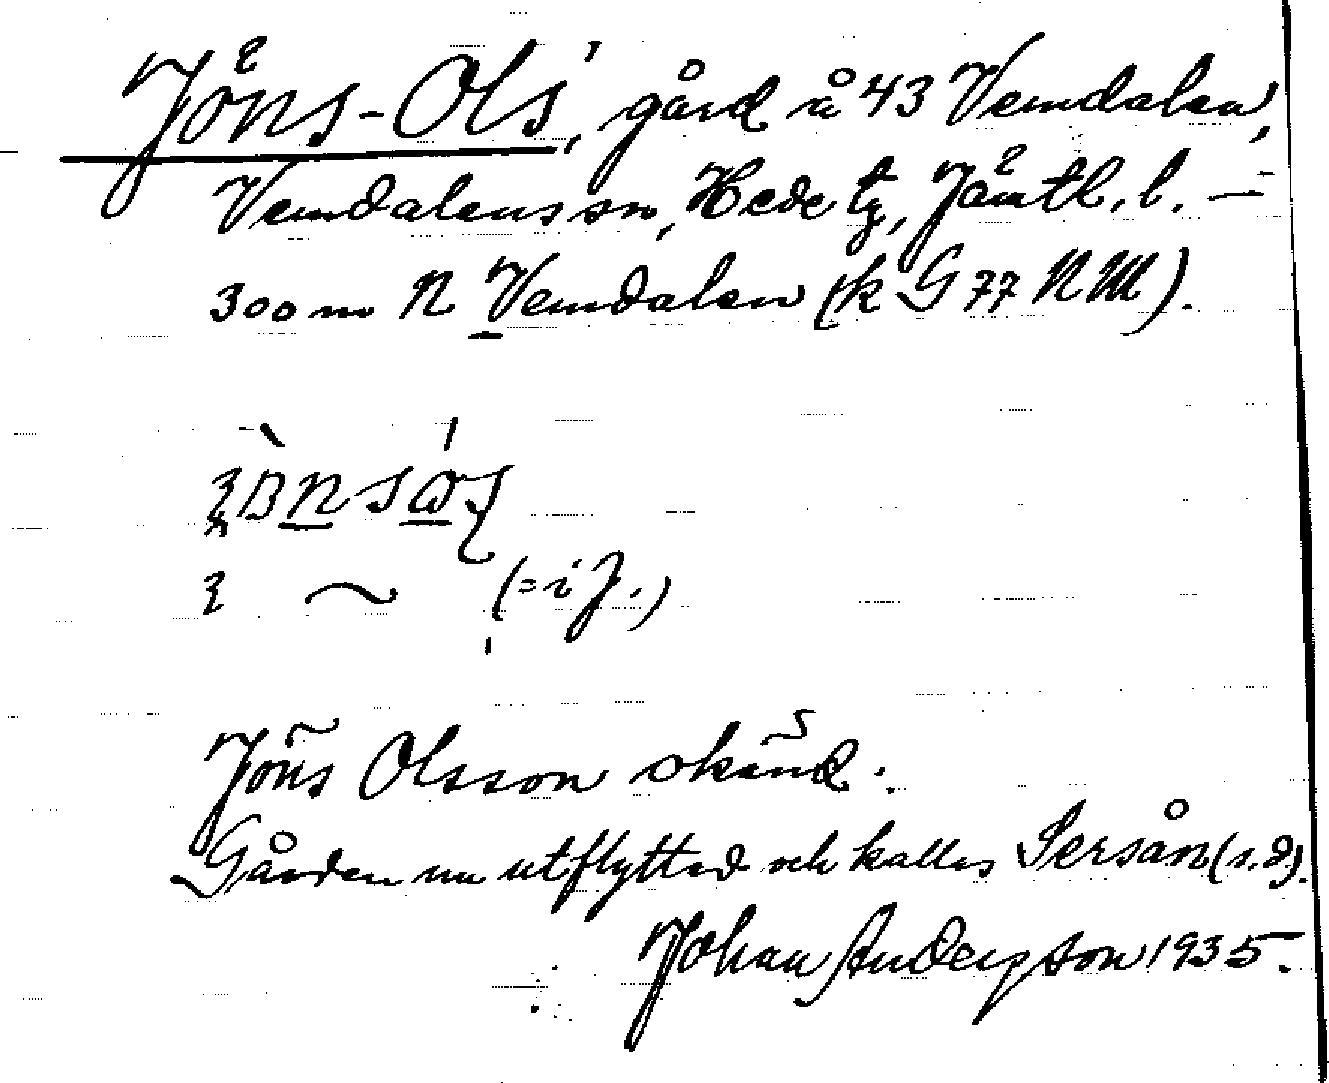 Jöns-Ols', gård å 43 Vemdalen,
Vemdalens sn, Hede tg, Jämtl. l. —
300 m N Vemdalen (k G 77 NM).
(= i J.)
Jöns Olsson okänd.
Gården nu utflyttad och kallas Sersån (s.d).
Johan Anderson 1935.